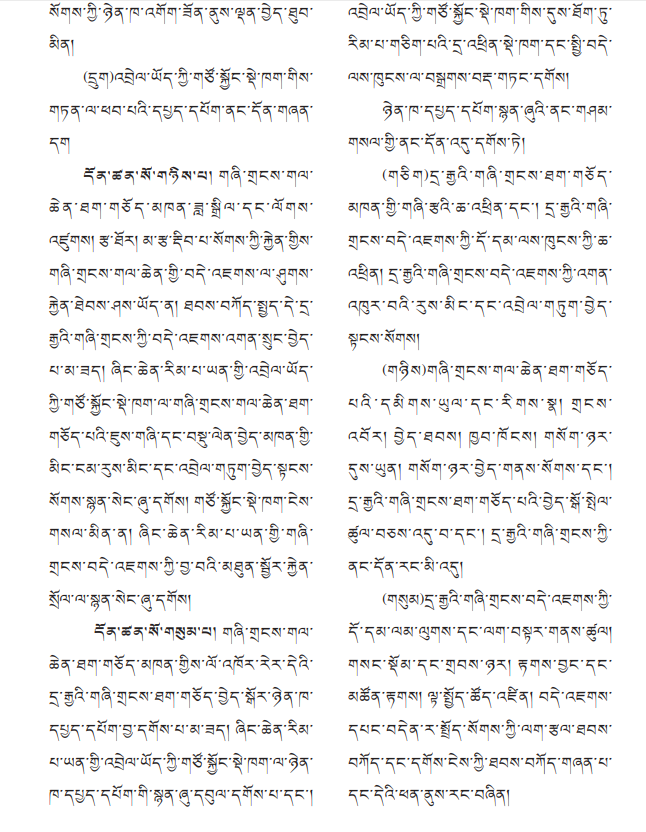 སོགས་ཀྱི་ཉེན་ཁ་འགོག་ཟོན་ནུས་ལྡན་བྱེད་ཐུབ་
མིན།
(དྲུག)འབྲེལ་ཡོད་ཀྱི་གཙོ་སྐྱོང་སྡེ་ཁག་གིས་
གཏན་ལ་ཕབ་པའི་དཔྱད་དཔོག་ནང་དོན་གཞན་
དག
དོན་ཚན་སོ་གཉིས་པ། གཞི་གྲངས་གལ་
ཆེན་ཐག་གཅོད་མཁན་ཟླ་སྒྲིལ་དང་ལོགས་
འཛུགས། རྩ་ཐོར། མ་རྩ་རྡིབ་པ་སོགས་ཀྱི་རྐྱེན་གྱིས་
གཞི་གྲངས་གལ་ཆེན་གྱི་བདེ་འཇགས་ལ་ཤུགས་
རྐྱེན་ཐེབས་ཤས་ཡོད་ན། ཐབས་བཀོད་སྤྱད་དེ་དྲ་
རྒྱའི་གཞི་གྲངས་ཀྱི་བདེ་འཇགས་འགན་སྲུང་བྱེད་
པ་མ་ཟད། ཞིང་ཆེན་རིམ་པ་ཡན་གྱི་འབྲེལ་ཡོད་
ཀྱི་གཙོ་སྐྱོང་སྡེ་ཁག་ལ་གཞི་གྲངས་གལ་ཆེན་ཐག་
གཅོད་པའི་ཇུས་གཞི་དང་བསྡུ་ལེན་བྱེད་མཁན་གྱི་
མིང་ངམ་རུས་མིང་དང་འབྲེལ་གཏུག་བྱེད་སྟངས་
སོགས་སྙན་སེང་ཞུ་དགོས། གཙོ་སྐྱོང་སྡེ་ཁག་ངེས་
གསལ་མིན་ན། ཞིང་ཆེན་རིམ་པ་ཡན་གྱི་གཞི་
གྲངས་བདེ་འཇགས་ཀྱི་བྱ་བའི་མཐུན་སྦྱོར་རྐྱེན་
སྲོལ་ལ་སྙན་སེང་ཞུ་དགོས།
དོན་ཚན་སོ་གསུམ་པ། གཞི་གྲངས་གལ་
ཆེན་ཐག་གཅོད་མཁན་གྱིས་ལོ་འཁོར་རེར་དེའི་
དྲ་རྒྱའི་གཞི་གྲངས་ཐག་གཅོད་བྱེད་སྒོར་ཉེན་ཁ་
དཔྱད་དཔོག་བྱ་དགོས་པ་མ་ཟད། ཞིང་ཆེན་རིམ་
པ་ཡན་གྱི་འབྲེལ་ཡོད་ཀྱི་གཙོ་སྐྱོང་སྡེ་ཁག་ལ་ཉེན་
ཁ་དཔྱད་དཔོག་གི་སྙན་ཞུ་དབུལ་དགོས་པ་དང་།
འབྲེལ་ཡོད་ཀྱི་གཙོ་སྐྱོང་སྡེ་ཁག་གིས་དུས་ཐོག་ཏུ་
རིམ་པ་གཅིག་པའི་དྲ་འཕྲིན་སྡེ་ཁག་དང་སྤྱི་བདེ་
ལས་ཁུངས་ལ་བསྒྲགས་བརྡ་གཏང་དགོས།
ཉེན་ཁ་དཔྱད་དཔོག་སྙན་ཞུའི་ནང་གཤམ་
གསལ་གྱི་ནང་དོན་འདུ་དགོས་ཏེ།
(གཅིག)དྲ་རྒྱའི་གཞི་གྲངས་ཐག་གཅོད་
མཁན་གྱི་གཞི་རྩའི་ཆ་འཕྲིན་དང་། དྲ་རྒྱའི་གཞི་
གྲངས་བདེ་འཇགས་ཀྱི་དོ་དམ་ལས་ཁུངས་ཀྱི་ཆ་
འཕྲིན། དྲ་རྒྱའི་གཞི་གྲངས་བདེ་འཇགས་ཀྱི་འགན་
འཁུར་བའི་རུས་མིང་དང་འབྲེལ་གཏུག་བྱེད་
སྟངས་སོགས།
(གཉིས)གཞི་གྲངས་གལ་ཆེན་ཐག་གཅོད་
པའི་དམིགས་ཡུལ་དང་རིགས་སྣ། གྲངས་
འབོར། བྱེད་ཐབས། ཁྱབ་ཁོངས། གསོག་ཉར་
དུས་ཡུན། གསོག་ཉར་བྱེད་གནས་སོགས་དང་།
དྲ་རྒྱའི་གཞི་གྲངས་ཐག་གཅོད་པའི་བྱེད་སྒོ་སྤེལ་
ཚུལ་བཅས་འདུ་བ་དང་། དྲ་རྒྱའི་གཞི་གྲངས་ཀྱི་
ནང་དོན་རང་མི་འདུ།
(གསུམ)དྲ་རྒྱའི་གཞི་གྲངས་བདེ་འཇགས་ཀྱི་
དོ་དམ་ལམ་ལུགས་དང་ལག་བསྟར་གནས་ཚུལ།
གསང་སྡོམ་དང་གྲབས་ཉར། རྟགས་བྱང་དང་
མཚོན་རྟགས། ལྟ་སྤྱོད་ཚོད་འཛིན། བདེ་འཇགས་
དཔང་བདེན་ར་སྤྲོད་སོགས་ཀྱི་ལག་རྩལ་ཐབས་
བཀོད་དང་དགོས་ངེས་ཀྱི་ཐབས་བཀོད་གཞན་པ་
དང་དེའི་ཕན་ནུས་རང་བཞིན།